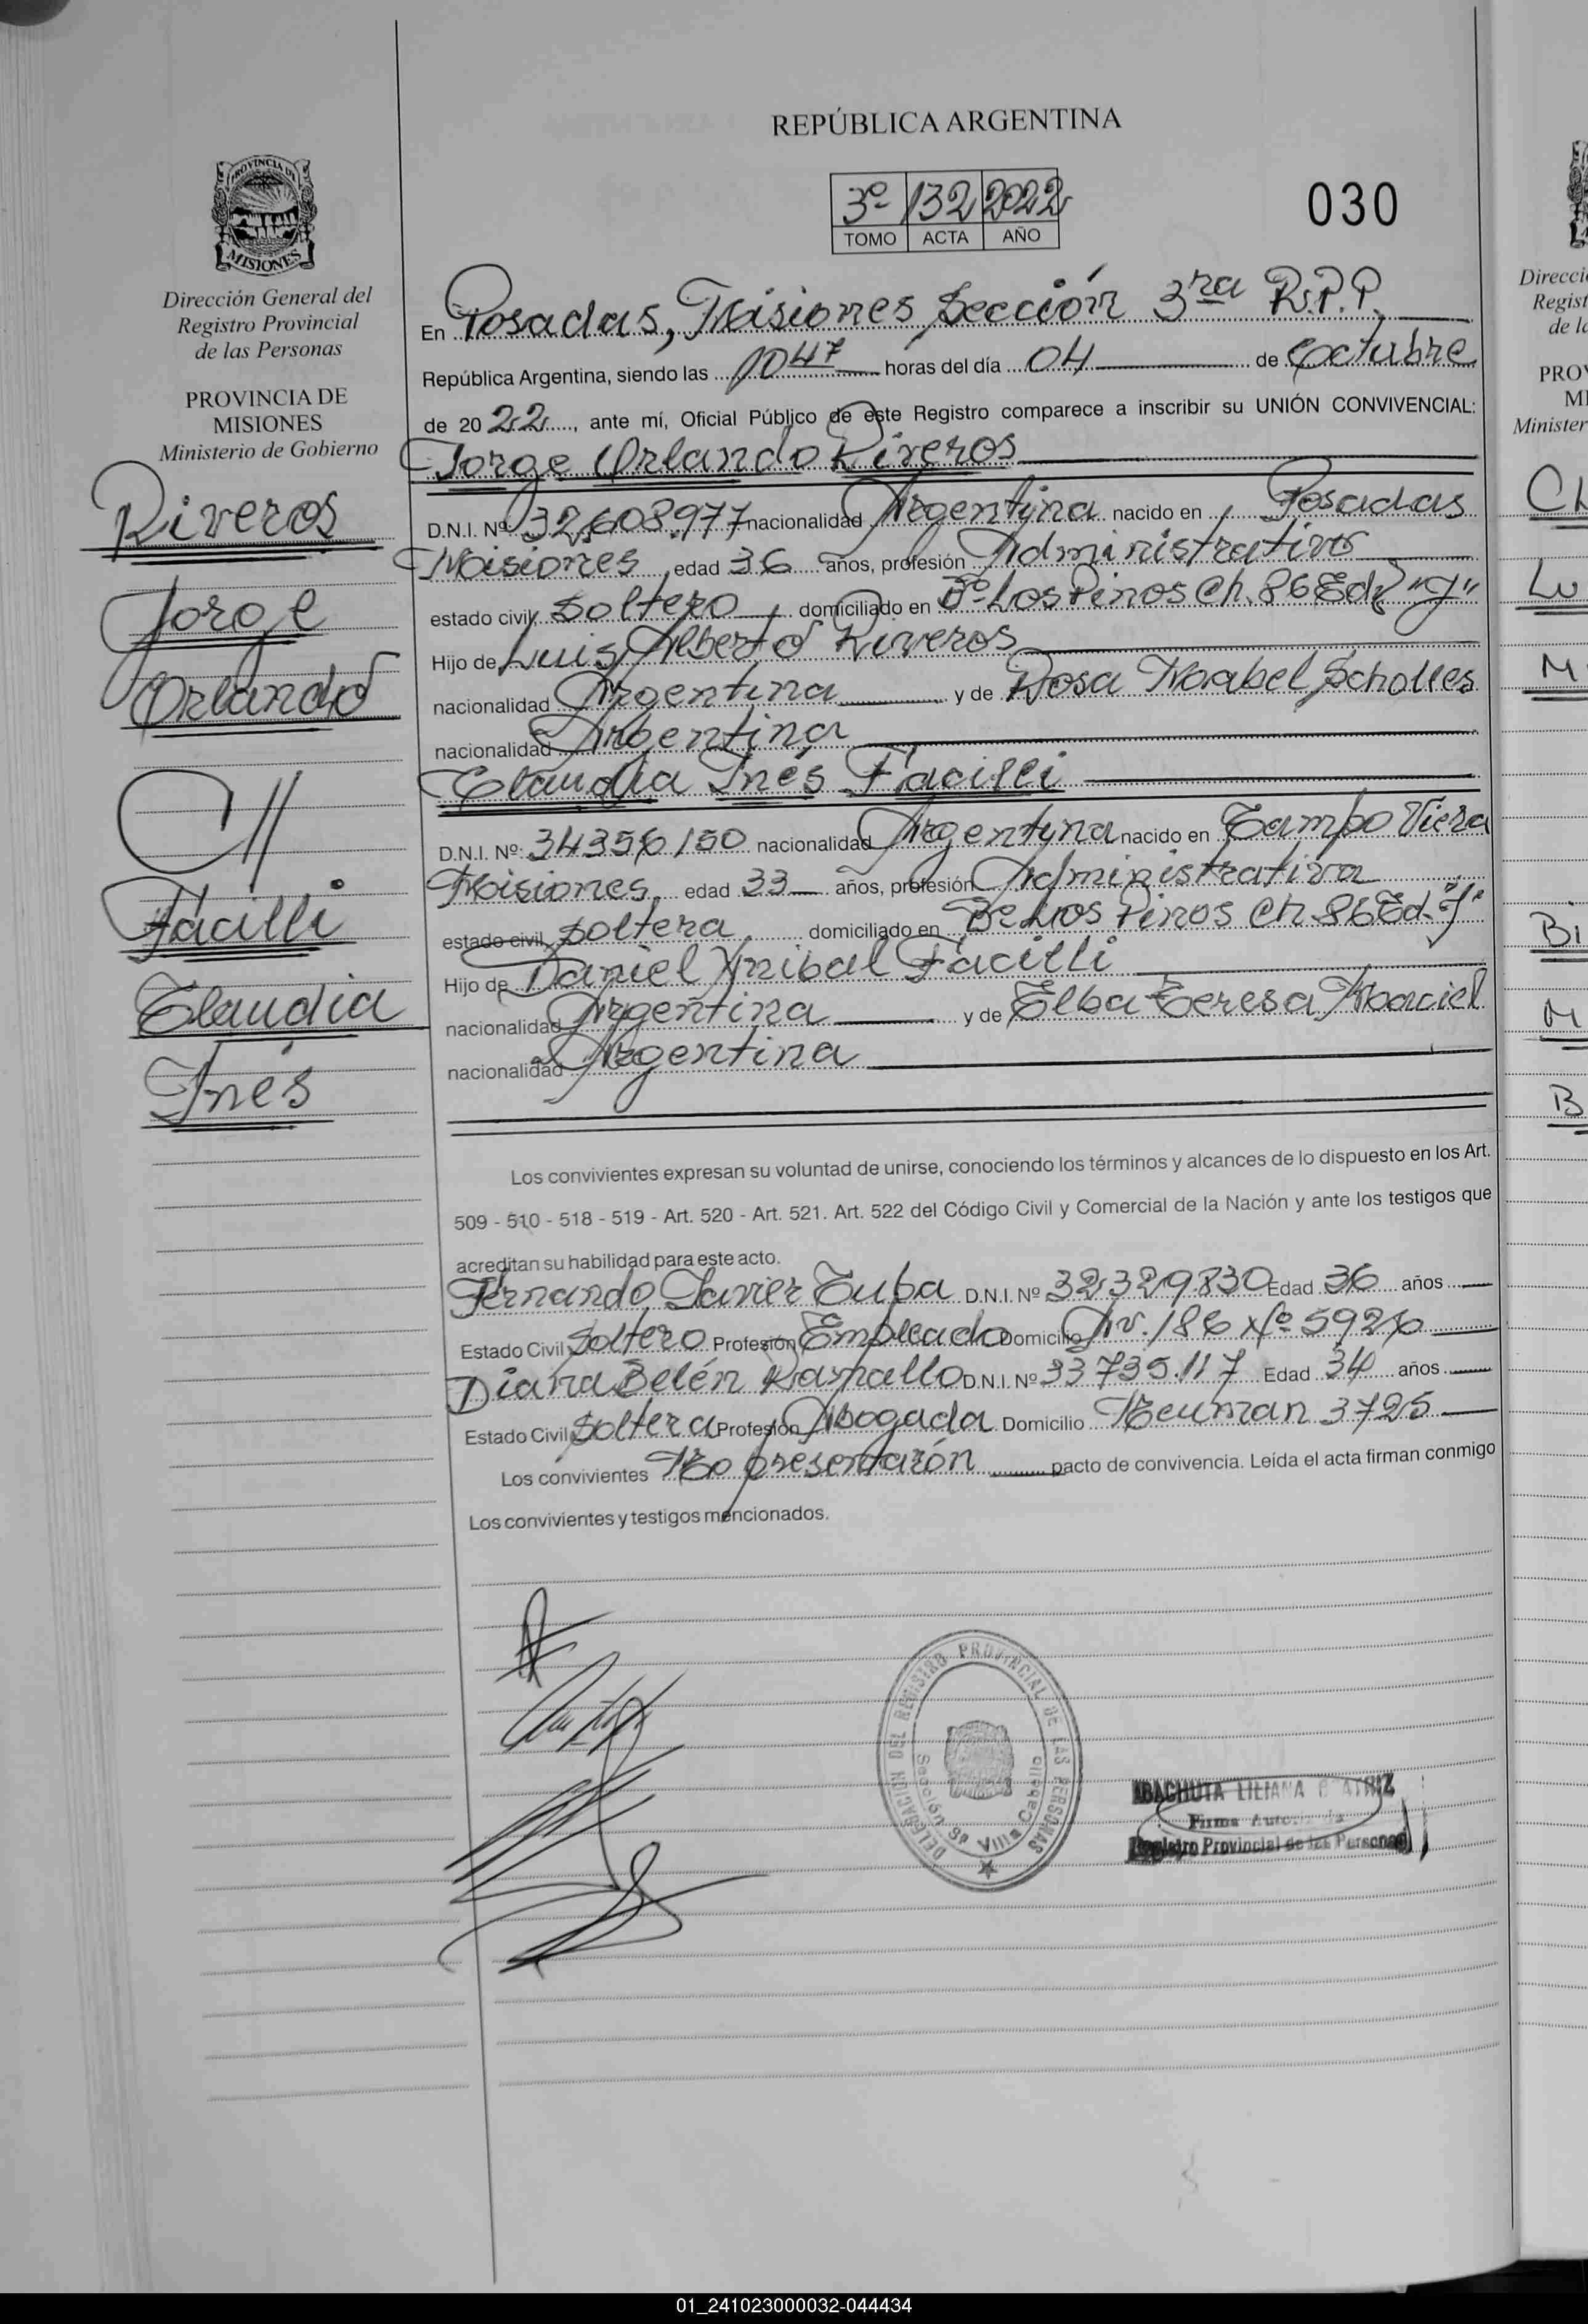 REPÚBLICA ARGENTINA
3º 132 2022
TOMO ACTA AÑO
030
PROVINCIA DE
MISIONES
Dirección General del
Registro Provincial
de las Personas
PROVINCIA DE
MISIONES
Ministerio de Gobierno
Riveros
Jorge
Orlando
Facilli
Claudia
Inés
En Posadas, Misiones Sección 3ra R.P.P.
República Argentina, siendo las 1047 horas del día 04 de octubre
de 2022, ante mí, Oficial Público de este Registro comparece a inscribir su UNIÓN CONVIVENCIAL:
Jorge Orlando Riveros
D.N.I. Nº: 32.608.977 nacionalidad Argentina nacido en Posadas
Misiones edad 36 años, profesión Administrativo
estado civil soltero domiciliado en Bº Los Pinos Ch. 86 Ed. "J"
Hijo de Luis Alberto Riveros
nacionalidad Argentina y de Rosa Mabel Scholles
nacionalidad Argentina
Claudia Inés Facilli
D.N.I. Nº: 34356150 nacionalidad Argentina nacido en Campo Viera
Misiones edad 33 años, profesión Administrativa
estado civil soltera domiciliado en Bº Los Pinos Ch. 86 Ed. "J"
Hijo de Daniel Anibal Facilli
nacionalidad Argentina y de Elba Teresa Maciel
nacionalidad Argentina
Los convivientes expresan su voluntad de unirse, conociendo los términos y alcances de lo dispuesto en los Art.
509 - 510 - 518 - 519 - Art. 520 - Art. 521. Art. 522 del Código Civil y Comercial de la Nación y ante los testigos que
acreditan su habilidad para este acto.
Fernando Javier Cuba D.N.I. Nº 32329830 Edad 36 años
Estado Civil soltero Profesión Empleado Domicilio Av. 186 Nº 5926
Diana Belén Ramallo D.N.I. Nº 33735.117 Edad 34 años
Estado Civil soltera Profesión Abogada Domicilio Neuman 3725
Los convivientes No presentarón pacto de convivencia. Leída el acta firman conmigo
Los convivientes y testigos mencionados.
DELEGACION DEL REGISTRO PROVINCIAL DE LAS PERSONAS
Sección 3ª Villa Cabello
ABACHUTA LILIANA BEATRIZ
Firma Autorizada
Registro Provincial de las Personas
Direcci
Regist
de la
PROV
MI
Minister
Ch
Lu
M
Bi
M
B
01_241023000032-044434